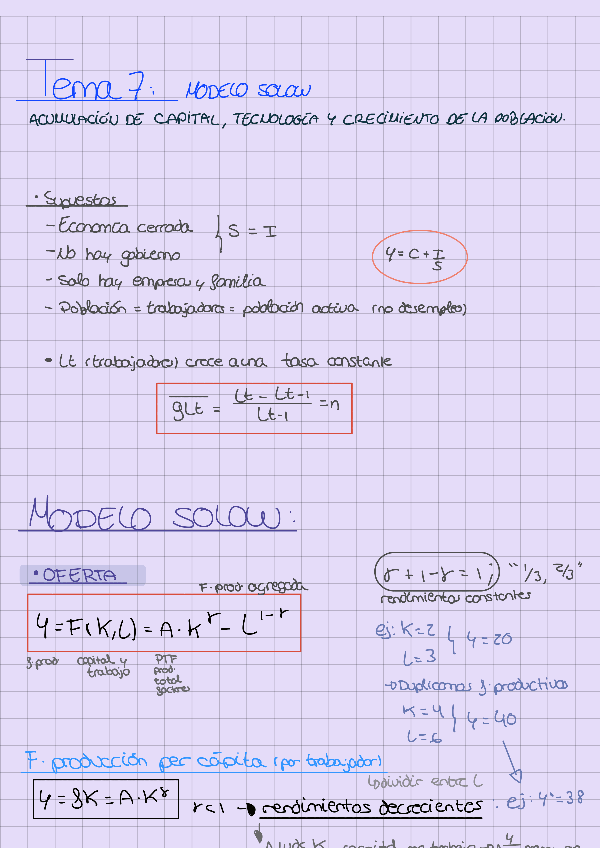 Tema 7: MODELO SOLOW
ACUMULACIÓN DE CAPITAL, TECNOLOGÍA Y CRECIMIENTO DE LA POBLACIÓN.
• Supuestos
- Economia cerrada } S = I
- No hay gobierno
Y = C + I
S
- Solo hay empresa y familia
- Población = trabajadores = población activa (no desempleo)
• Lt (trabajadores) crece a una tasa constante
gLt = (Lt - Lt-1) / Lt-1 = n
MODELO SOLOW:
• OFERTA
F. prod agregada
Y = F(K, L) = A · K^γ - L^1-γ
f. prod capital y trabajo PTF prod. total factores
γ + 1 - γ = 1; "1/3, 2/3"
rendimientos constantes
ej: K = 2 } Y = 20
L = 3
→ Duplicamos f. productivos
K = 4 } Y = 40
L = 6
F. producción per cápita (por trabajador)
↳ dividir entre L
Y = fK = A · K^γ γ<1 → rendimientos decrecientes. ej: Y = 38